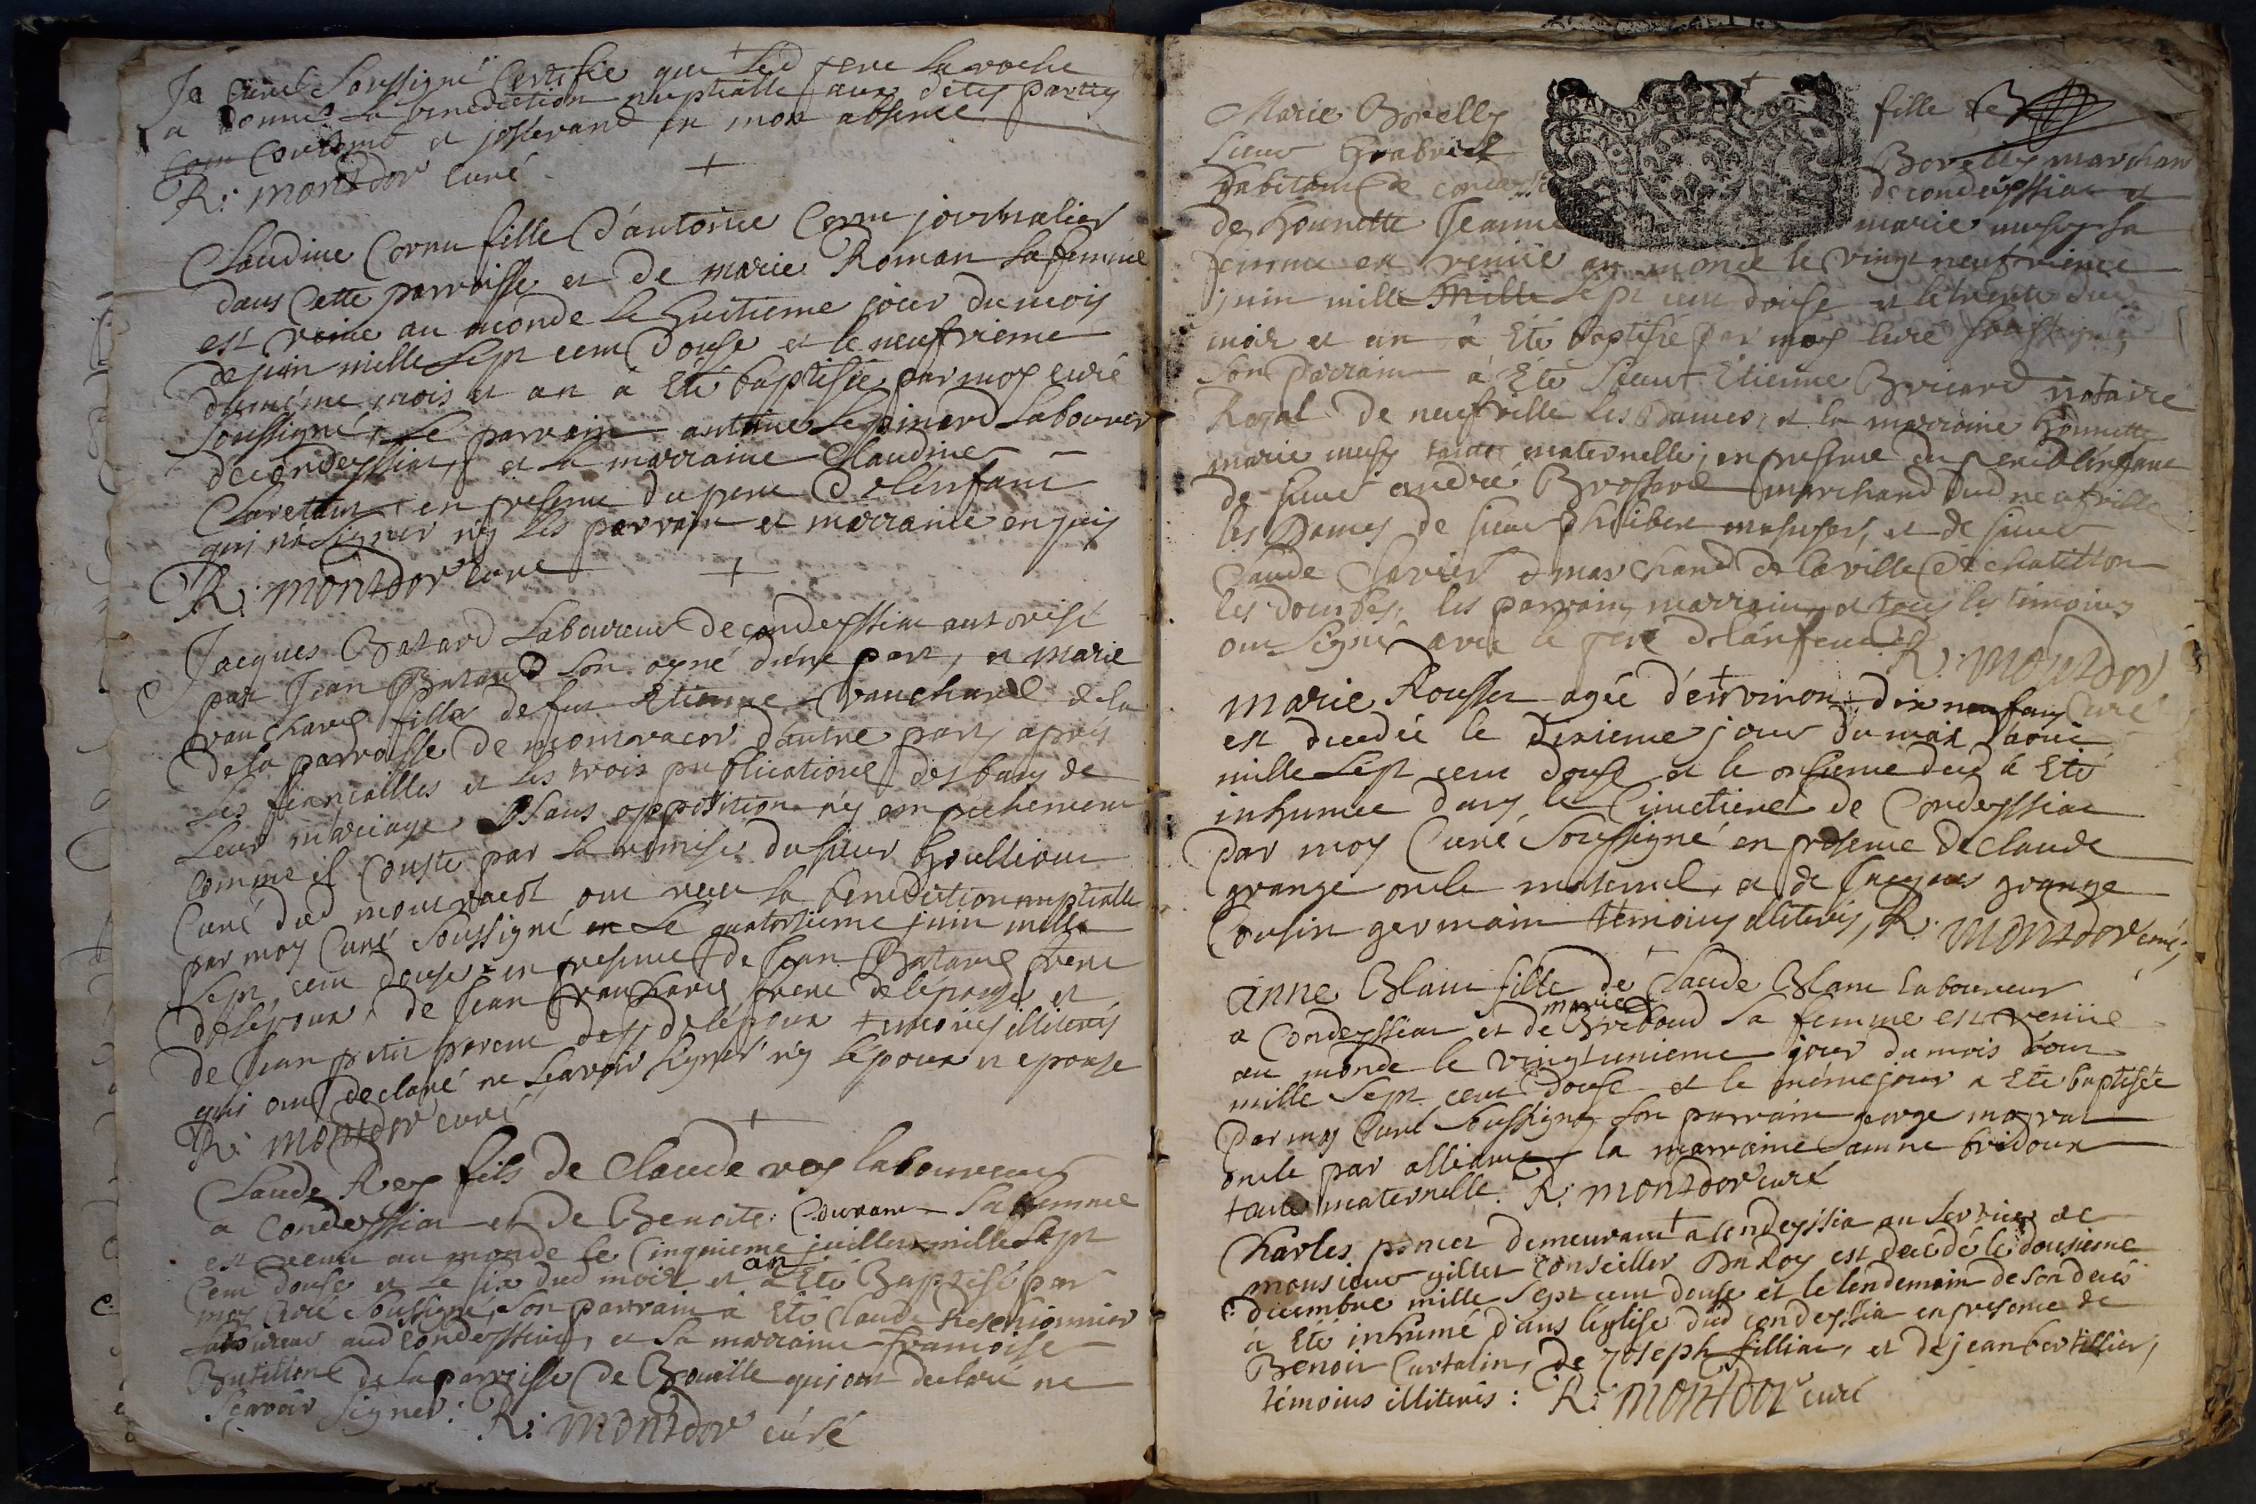 Je Curé Soussigné Certifie que led pere la roche
a donné la benediction nuptialle aux dites parties
et josserand en mon absence
R: montdor curé
Claudine Cornu fille d'antoine Cornu journalier
dans Cette parroisse et de marie Roman sa femme
est venüe au monde le huitieme jour du mois
de juin mille sept cent douse et le neufvieme
du même mois et an à Eté baptisée par moy curé
soussigné, Le parrain antoine Lepinard Laboureur
de condeyssiat et la marraine Claudine
en presence du pere de lenfant
qui n'a signer n'y les parrain et marraine enquis
R: montdor curé
Jacques Batard Laboureur de condeyssiat autorisé
par Jean Batard son ayné d'une part, et marie
vauchard fille de fut Etienne vauchard de la
de la parroisse de d'autre part, aprés
les fiancailles et les trois publications des bans de
leur mariage Sans opposition n'y empechement
comme il Conste par la remise du sieur
Curé dud ont receu la benediction nuptialle
par moy Curé Soussigné Le quatorsieme juin mille
Sept cent douse en presence de Jean Batard frere
de lepoux, de Jean vauchard frere de lépouse et
de Jean petit parent de lépoux temoins illiterés
qui ont declaré ne scavoir signer n'y lepoux n epouse
R: montdor curé
Claude Rey fils de Claude rey laboureur
a Condeyssiat et de Benoite Durand sa femme
est venu au monde le Cinquieme juillet mille sept
cent douse et le six dud mois et an à Eté Baptisé par
moy curé soussigné, son parrain à Eté Claude
laboureur aud condeyssiat, et sa marraine francoise
de la parroisse de qui ont declaré ne
scavoir signer: R: montdor curé
Marie Borelly fille de
Sieur Gabriel Borelly marchand
habitant de condeyssiat
de honnette Jeanne marie sa
femme est venüe au monde le vingt neufvieme
juin mille mille sept cent douse et le trente dud
mois et an à Eté baptisée par moy curé soussigné,
Son parrain à Eté Sieur Etienne Bricard notaire
Royal de neufville les Dames, et la marraine honnette
marie tante maternelle, en presence du pere de l'enfant
de sieur andré Brossard marchand dud neufville
les Dames de sieur philibert et de sieur
Claude marchand de la ville de chatillon
les dombes, les parrain, marraine et tous les temoins
ont signé avec le pere de l'anfent R: montdor
curé
Marie Rousset agée d'environ dix neuf an
est decedée le dixieme jour du moix d'aout
mille sept cent douse et le onsieme dud à Eté
inhumée dans le Cimetiere de Condeyssiat
par moy Curé Soussigné en presence de claude
grange oncle maternel, et de Jacques grange
Cousin germain temoins illiterés, R: montdor curé,
Anne Blanc fille de Claude Blanc laboureur
a Condeyssiat et de marie Griboud sa femme est venüe
au monde le vingt unieme jour du mois d'out
mille sept cent douse et le même jour a Eté baptisée
par moy Curé Soussigné son parrain george
oncle par alliance, la marraine anne bridoux
tante maternelle. R: montdor curé
Charles poncet demeurant a condeyssia au service de
monsieur gillet Conseiller Du Roy est decedé le dousieme
decembre mille sept cent douse et le lendemain de son decés
à Eté inhumé dans l'église dud condeyssia en presence de
Benoit Curtalin, de joseph filliat, et de jean bertillier,
témoins illiterés: R: montdor curé